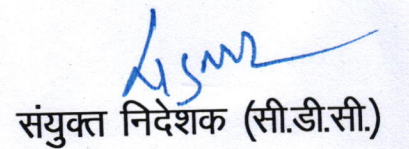 संयुक्त निदेशक (सी.डी.सी.)